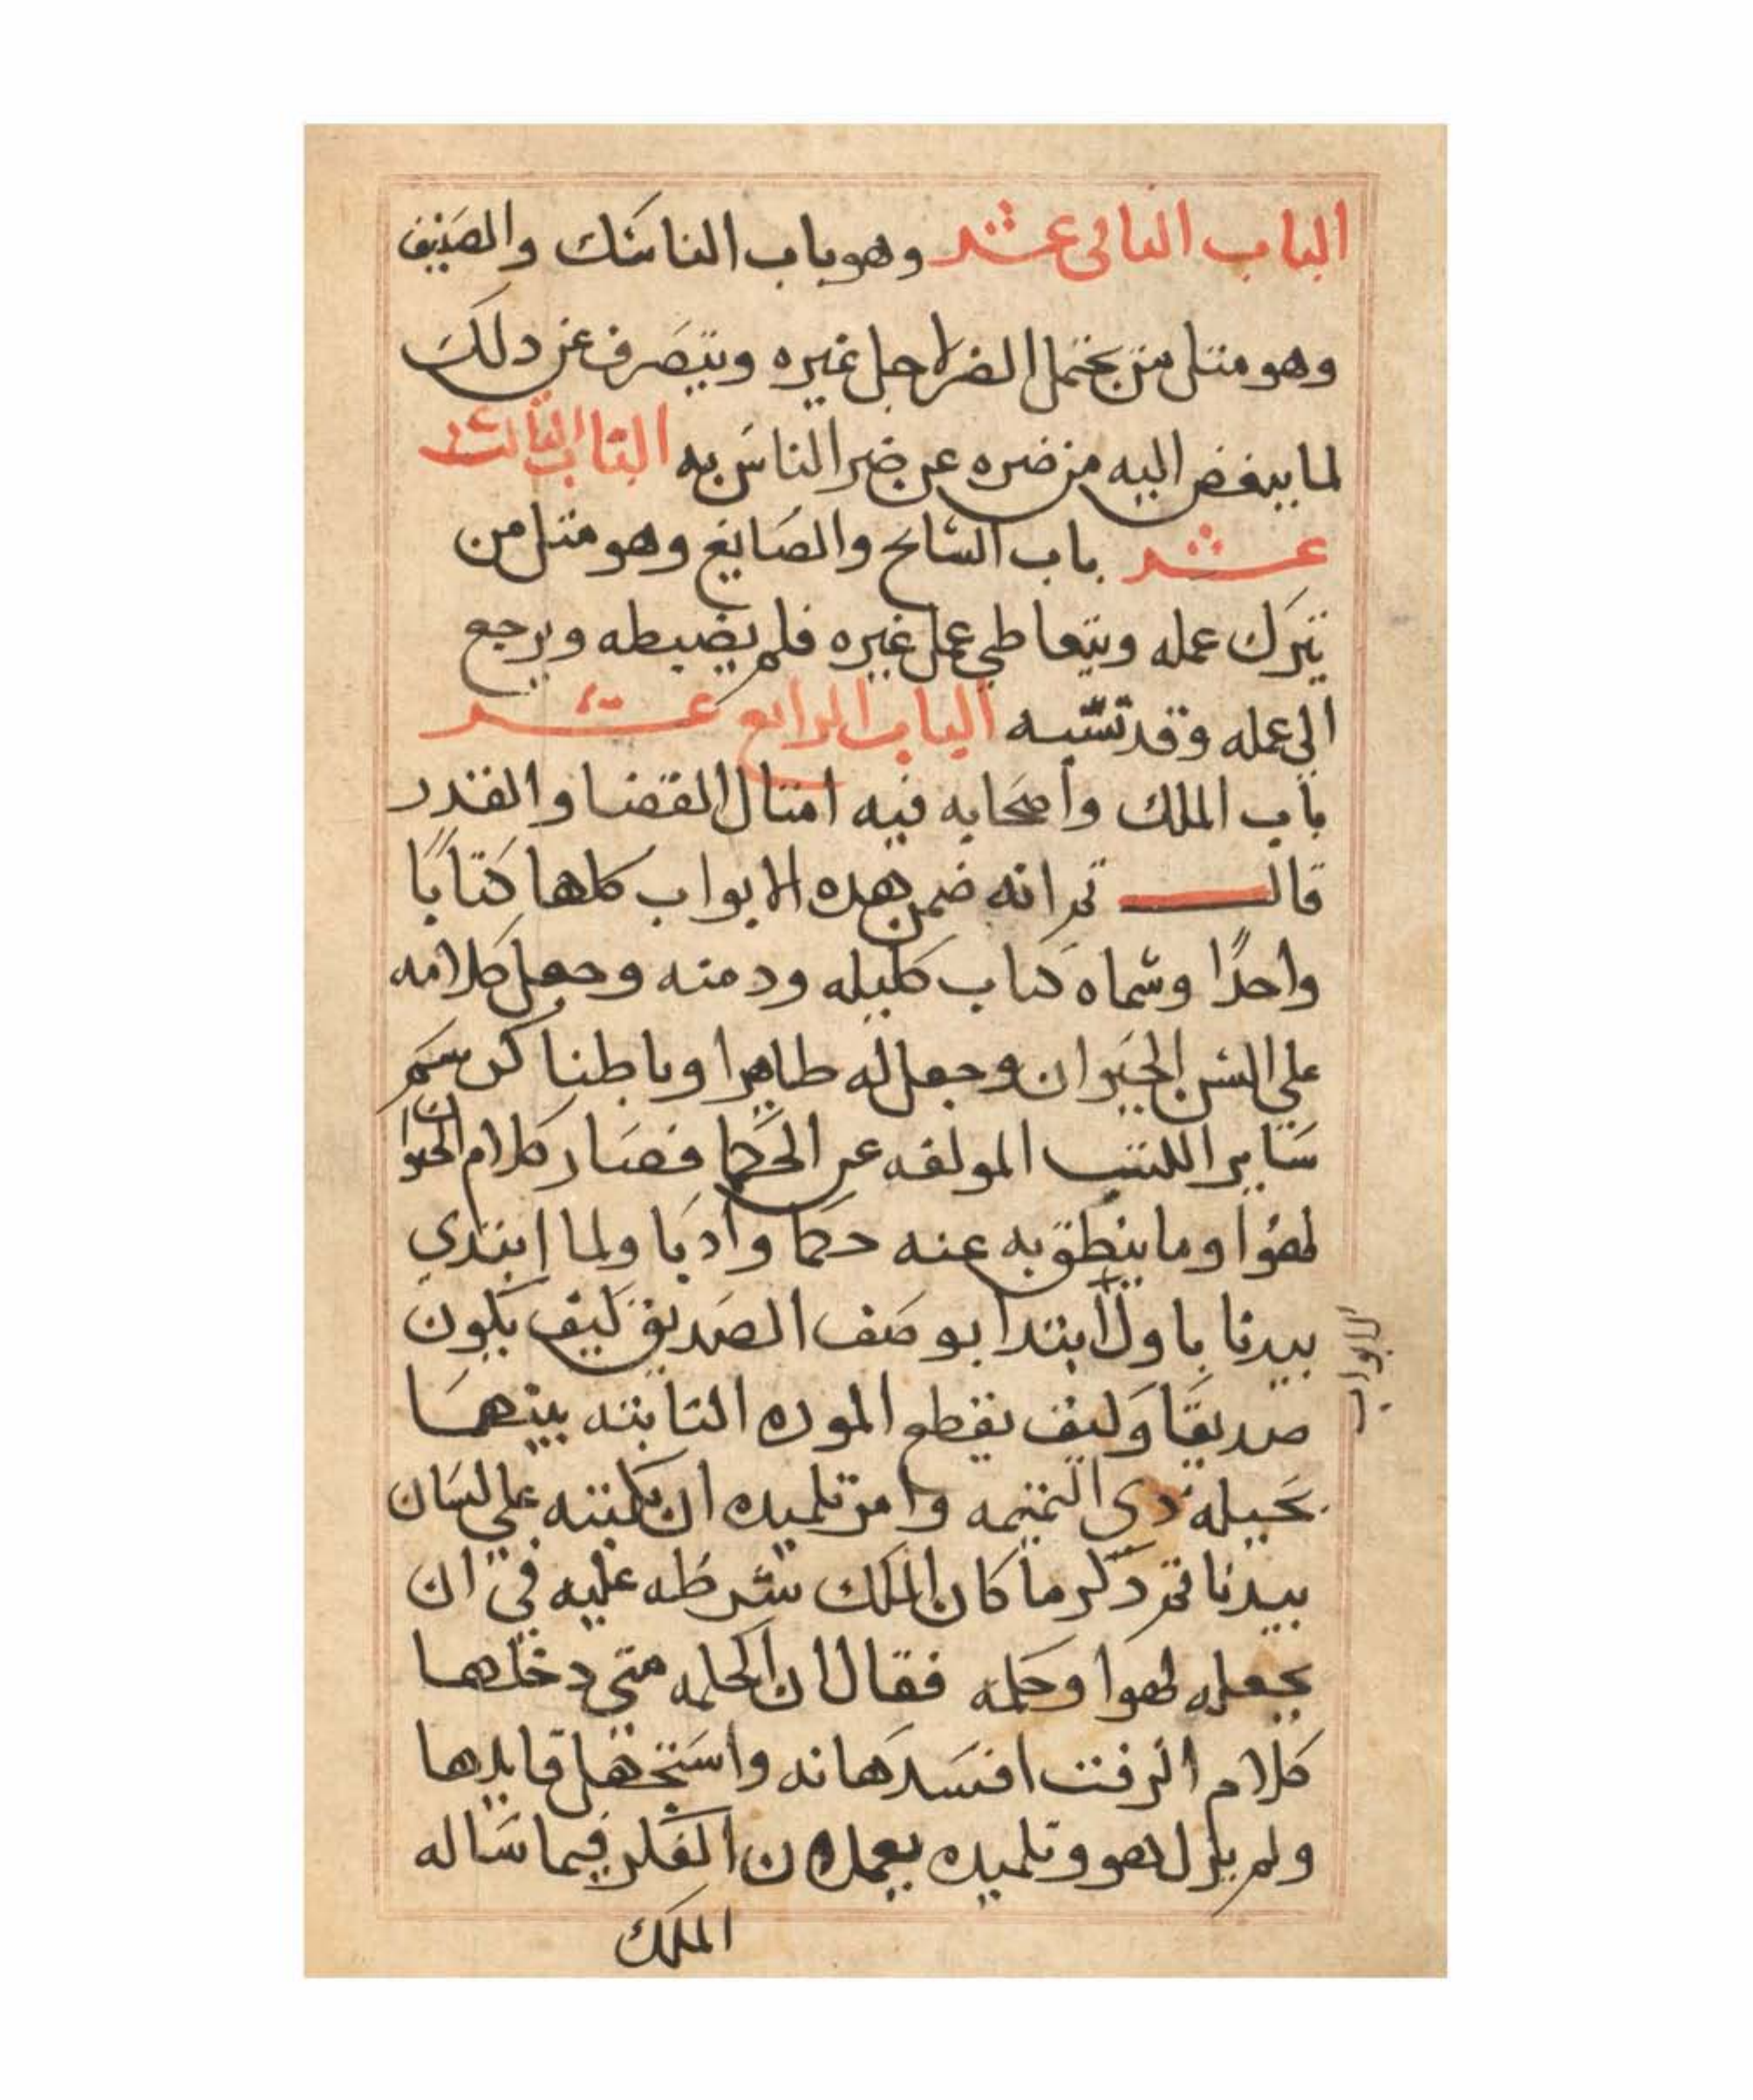 الباب الثاني عشر وهو باب الناسك والضيف
وهو مثل من يحتمل الضر لاجل غيره وينصرف عن دلك
لما يبغض اليه من ضره عن ضر الناس به الباب الثالث
عشر باب السايح والصايغ وهو مثل من
يترك عمله ويتعاطي عمل غيره فلم يضبطه ويرجع
الي عمله وقد تشبه الباب الرابع عشر
باب الملك واصحابه فيه امثال القضا والقدر
قال ثم انه ضمن هده الابواب كلها كتابًا
واحدًا وسماه كتاب كليله ودمنه وجعل كلامه
علي السن الحيوان وجعل له طاهرا وباطنا كرسم
ساير الكتب المولفه عن الحكما فصار كلام الحيوان
لهوا وما ينطق به عنه حكما وادبا ولما ابتدي
بيدبا باول ابتدا بوصف الصديق كيف يكون
الابواب
صديقا وكيف يقطع الموده الثابته بينهما
بحيله دي النميمه وامر تلميده ان يكتبه علي لسان
بيدبا ثم دكر ما كان الملك شرطه عليه في ان
يجعله لهوا وحكمه فقال ان الحكمه متي دخلها
كلام الرفت افسدها نه واستجهل قايلها
ولم يزل هو وتلميده يعملان الفكر فيما ساله
الملك